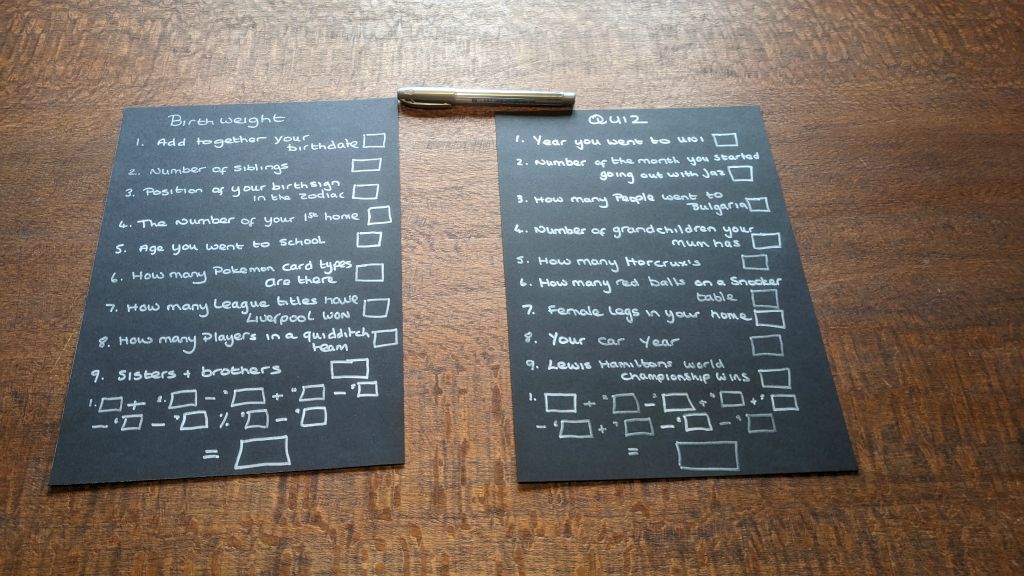 Birth weight
1. Add together your
birthdate
2. Number of siblings
3. Position of your birthsign
in the zodiac
4. The number of your 1st home
5. Age you went to school
6. How many Pokemon card types
are there
7. How many League titles have
Liverpool won
8. How many Players in a quidditch
team
9. Sisters + brothers
1. + 2. - 3. + 4. - 5.
- 6. - 7. % 8. - 9.
=
QUIZ
1. Year you went to uni
2. Number of the month you started
going out with Jaz
3. How many People went to
Bulgaria
4. Number of grandchildren your
Mum has
5. How many Horcruxis
6. How many red balls on a Snooker
table
7. Female legs in your home
8. Your car year
9. Lewis Hamiltons world
championship wins
1. + 2. - 3. + 4. + 5.
- 6. + 7. - 8. - 9.
=